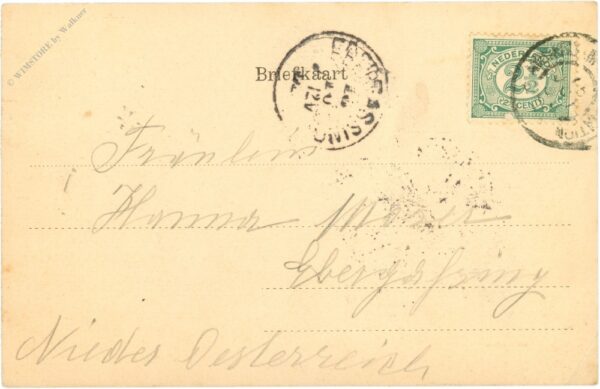 © WIMSTORE by Walkner
Briefkaart
NEDERLAND
2½
CENT
Fräulein
Hanna Moser
Ebergassing
Nieder Oesterreich